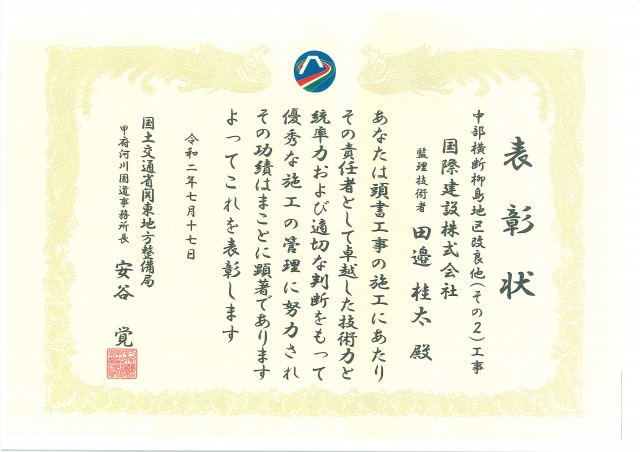 表彰状
中部横断柳島地区改良他(その2)工事
国際建設株式会社
監理技術者 田邉桂太殿
あなたは頭書工事の施工にあたり
その責任者として卓越した技術力と
統率力および適切な判断をもって
優秀な施工の管理に努力され
その功績はまことに顕著であります
よってこれを表彰します
令和二年七月十七日
国土交通省関東地方整備局
甲府河川国道事務所長 安谷覚